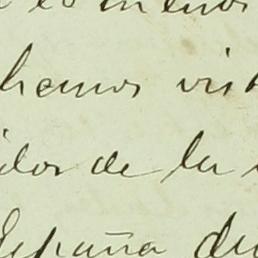 es menos
hemos vist
idos de la
España du